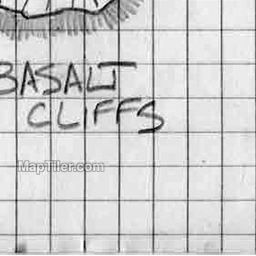 BASALT
CLIFFS
MapTiler.com